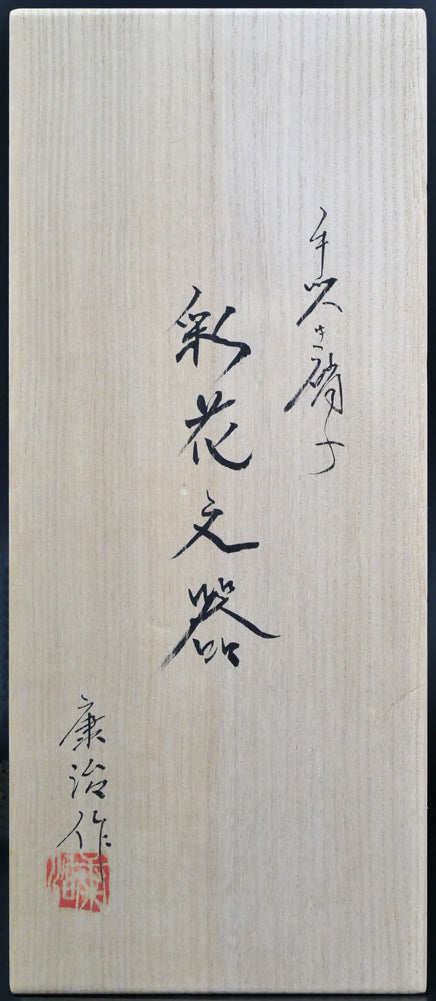 手吹き硝子
彩花文器
康治作
康治